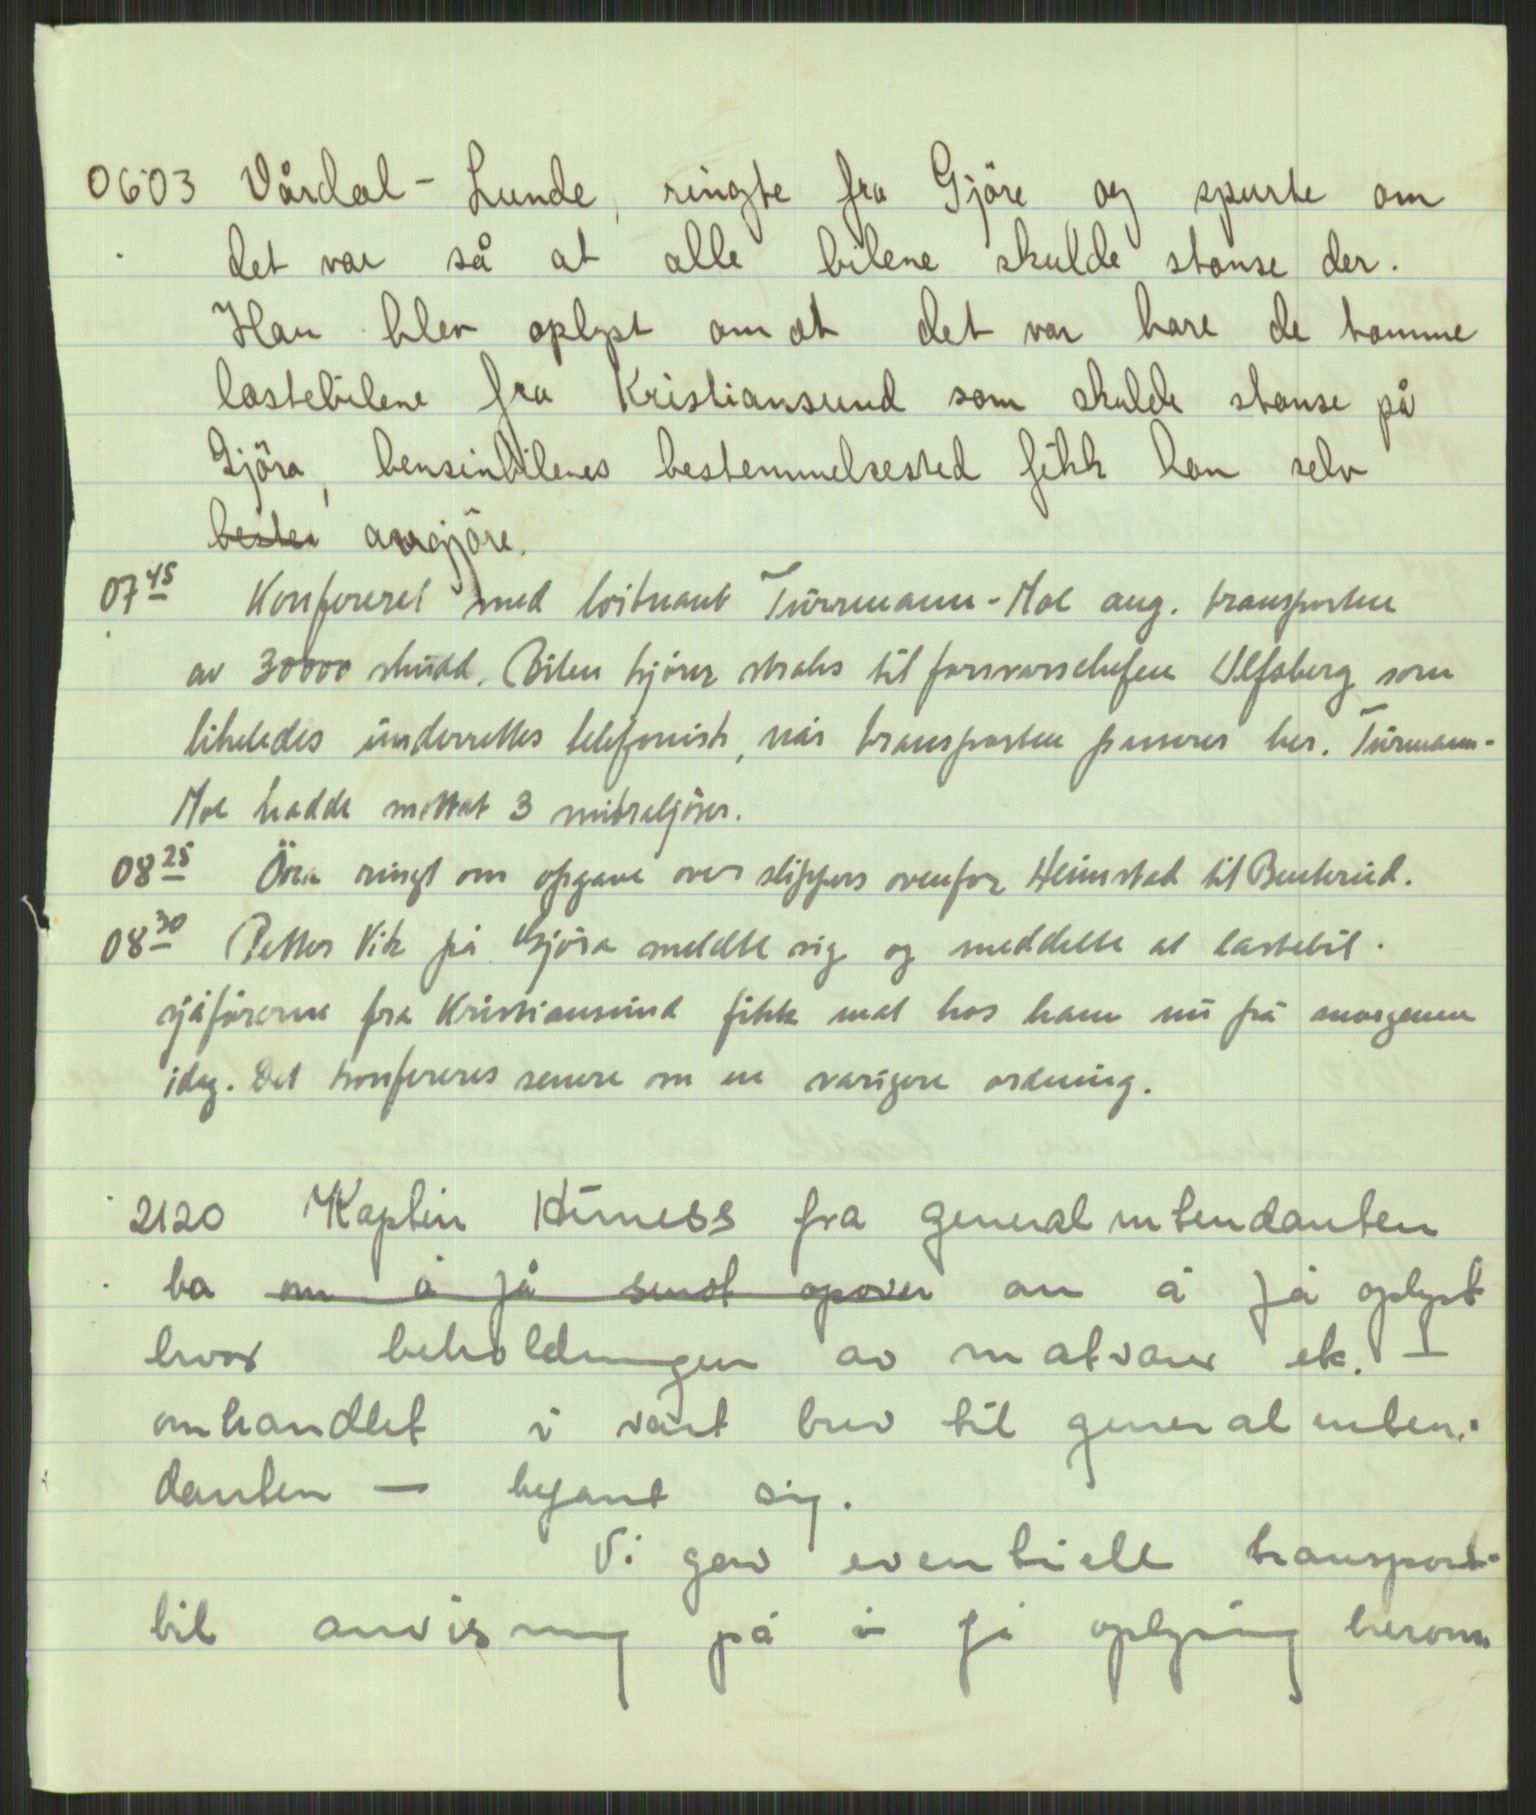 0603 Vårdal - Lunde, ringte fra Gjöre og spurte om
det var så at alle bilene skulde stanse der.
Han blev oplyst om at det var bare de tomme
lastebilene fra Kristiansund som skulde stanse på
Gjöra, bensinbilenes bestemmelsested fikk han selv
avgjöre.
07 45 Konfereret med löitnant Türrmann-Moe ang. transporten
av 30000 skudd. Bilen kjörer straks til forsvarschefen Ulfsberg som
likeledes underrettes telefonisk, når transporten passerer her. Türmann-
Moe hadde mottat 3 mitraljöser.
08 25 Öra ringt om opgave over slippers ovenfor Heimstad til Benterud.
08 30 Petter Vik på Gjöra meldte sig og meddelte at lastebil-
sjåförerne fra Kristiansund fikk mat hos ham nu på morgenen
idag. Det konfereres senere om en varigere ordning.
2120 Kaptein fra generalintendanten
ba om å få sendt opover om å få oplyst
hvor beholdningen av matvarer etc. I
omhandlet i vårt brev til generalinten-
danten — befant sig.
Vi gav eventuell transport-
bil anvisning på å få oplysning herom